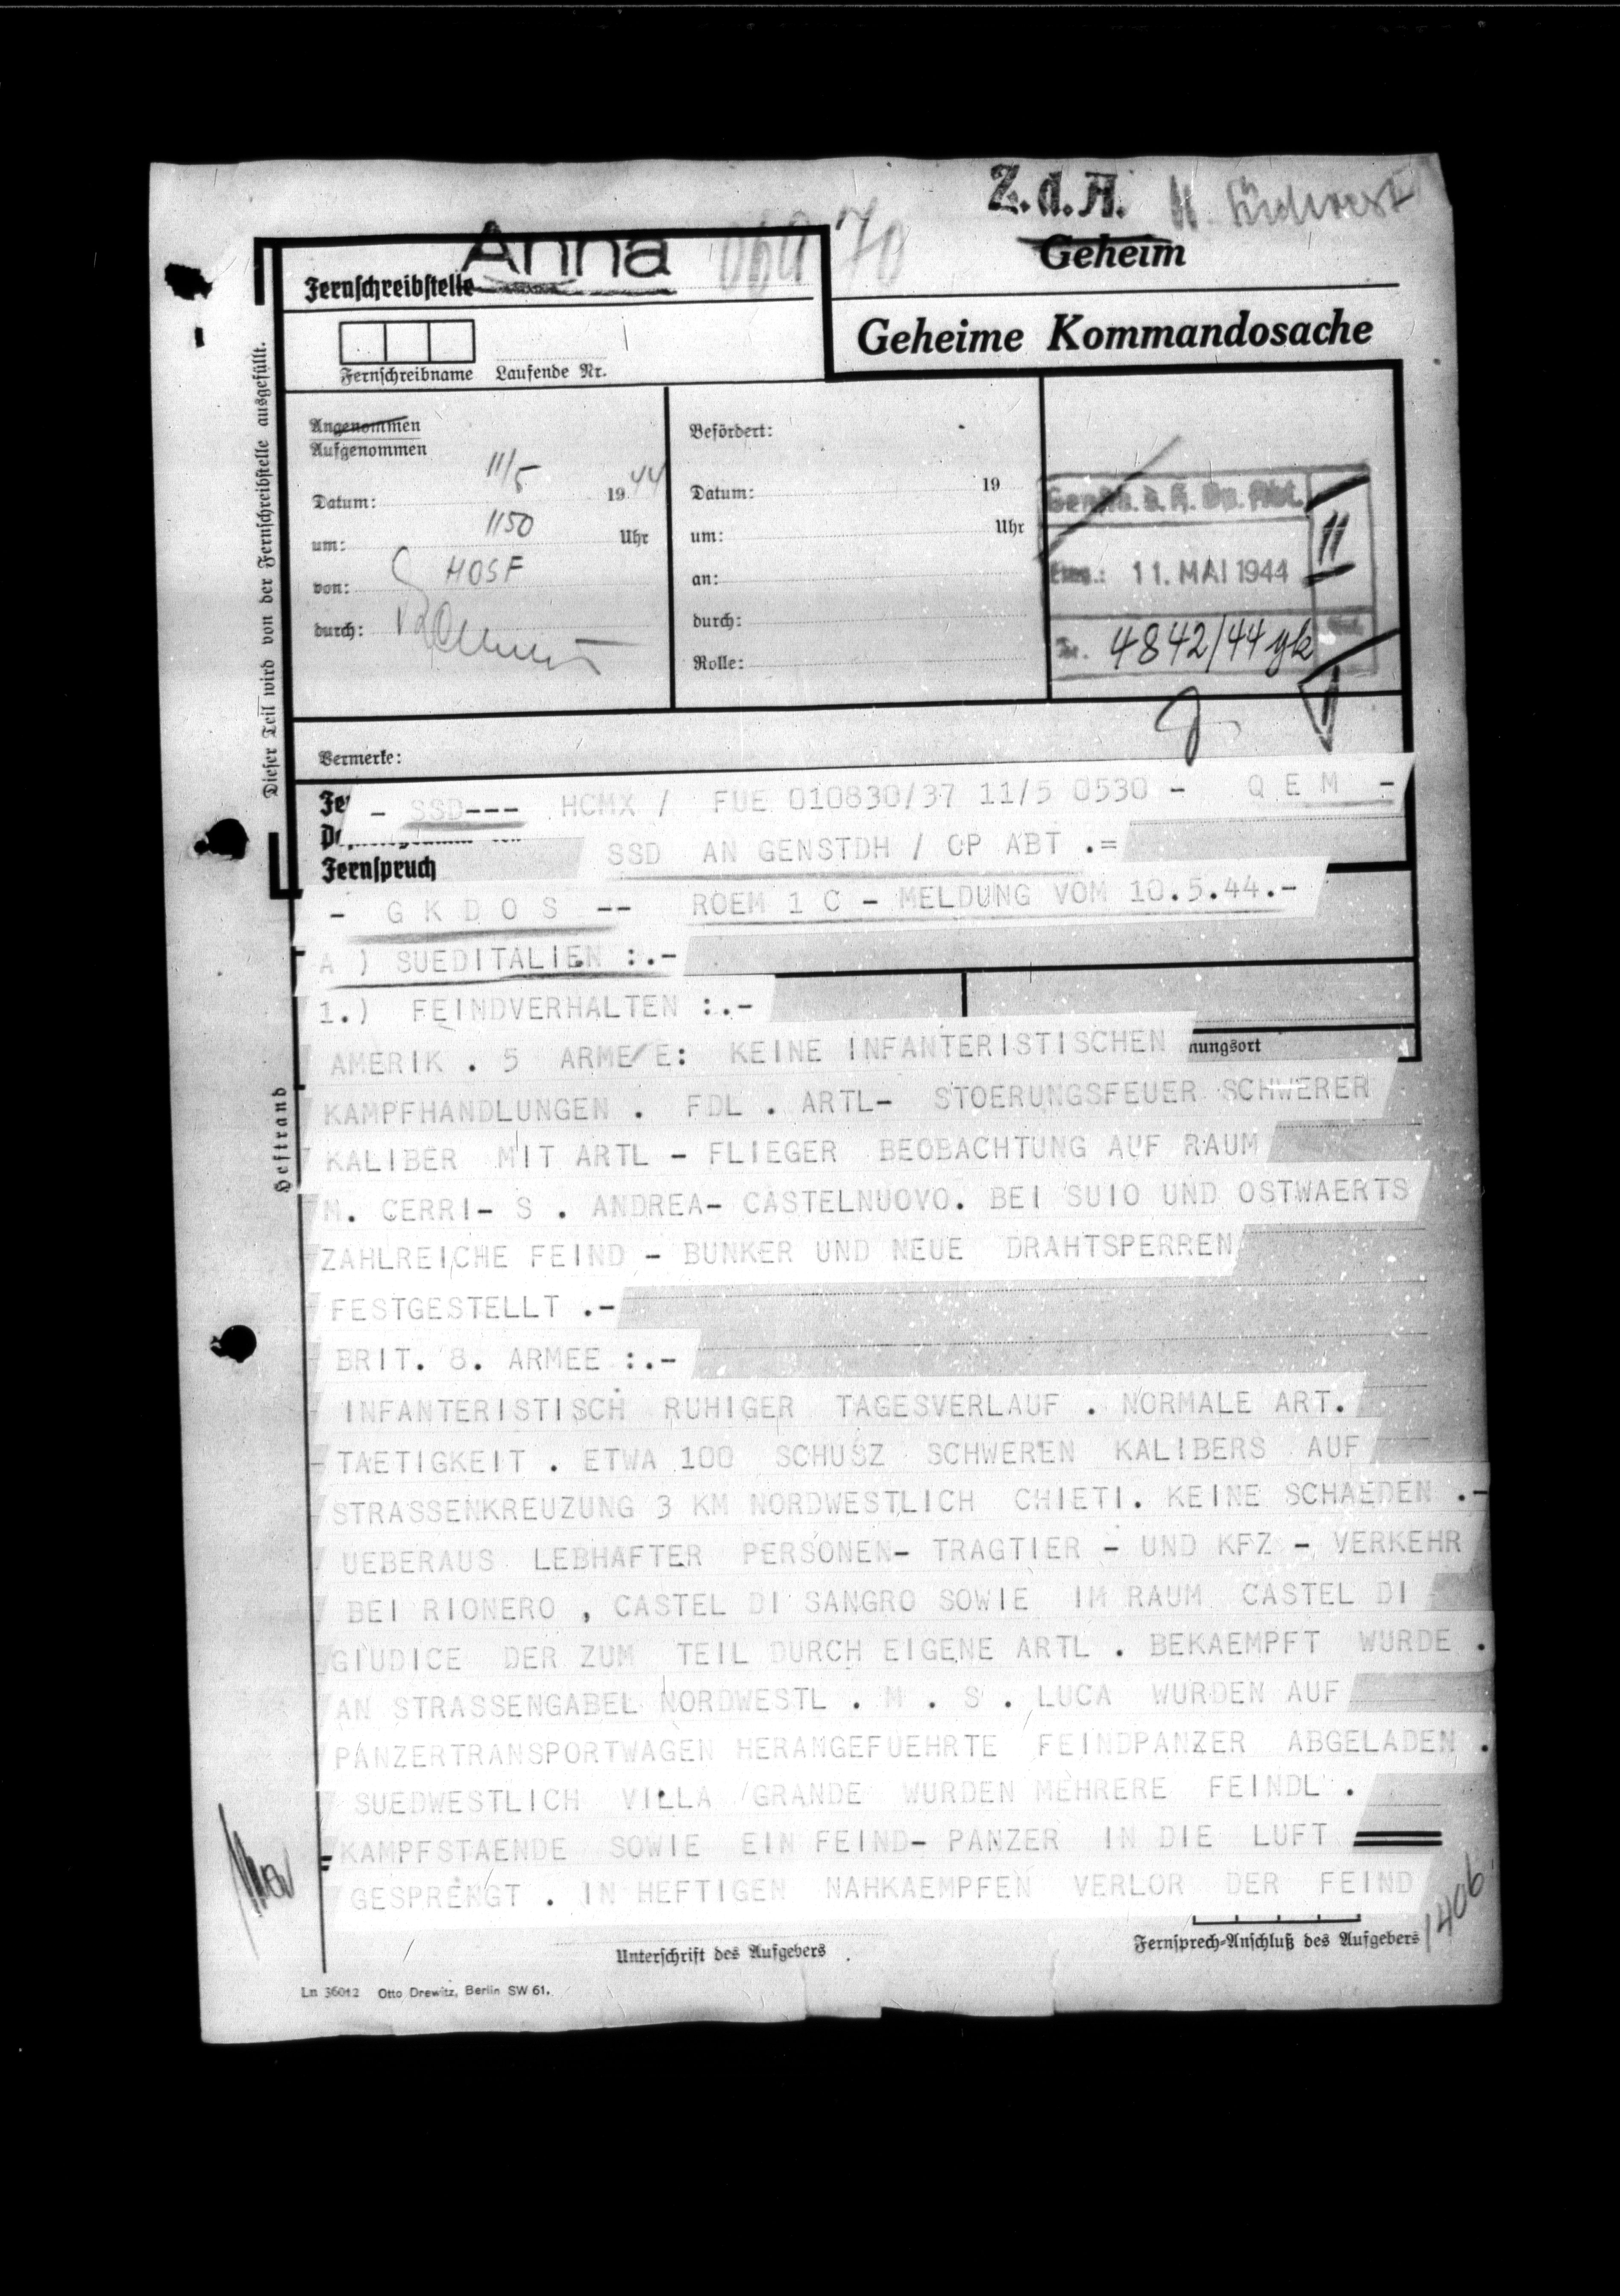 Z.d.A. H. Südwest
Geheim
Anna
Fernschreibstelle
Geheime Kommandosache
Fernschreibname Laufende Nr.
Dieser Teil wird von der Fernschreibstelle ausgefüllt.
Angenommen
Aufgenommen
Datum: 11/5 1944
um: 1150 Uhr
von: HOSF
durch:
Befördert:
Datum: 19
um: Uhr
an:
durch:
Rolle:
GenSt. d. H. Op. Abt.
Eing.: 11. MAI 1944
II
Nr. 4842/44 gk
Vermerke:
- SSD--- HCMX / FUE 010830/37 11/5 0530 - Q E M -
SSD AN GENSTDH / OP ABT .=
Fernspruch
- G K D O S -- ROEM 1 C - MELDUNG VOM 10.5.44.-
A ) SUEDITALIEN :.-
1.) FEINDVERHALTEN :.-
nungsort
AMERIK . 5 ARME/E: KEINE INFANTERISTISCHEN
KAMPFHANDLUNGEN . FDL . ARTL- STOERUNGSFEUER SCHWERER
KALIBER MIT ARTL - FLIEGER BEOBACHTUNG AUF RAUM
M. CERRI- S . ANDREA- CASTELNUOVO. BEI SUIO UND OSTWAERTS
ZAHLREICHE FEIND - BUNKER UND NEUE DRAHTSPERREN
FESTGESTELLT .-
BRIT. 8. ARMEE :.-
INFANTERISTISCH RUHIGER TAGESVERLAUF . NORMALE ART.
TAETIGKEIT . ETWA 100 SCHUSZ SCHWEREN KALIBERS AUF
STRASSENKREUZUNG 3 KM NORDWESTLICH CHIETI. KEINE SCHAEDEN .-
UEBERAUS LEBHAFTER PERSONEN- TRAGTIER - UND KFZ - VERKEHR
BEI RIONERO , CASTEL DI SANGRO SOWIE IM RAUM CASTEL DI
GIUDICE DER ZUM TEIL DURCH EIGENE ARTL . BEKAEMPFT WURDE .
AN STRASSENGABEL NORDWESTL . M . S . LUCA WURDEN AUF
PANZERTRANSPORTWAGEN HERAMGEFUEHRTE FEINDPANZER ABGELADEN .
SUEDWESTLICH VILLA GRANDE WURDEN MEHRERE FEINDL .
KAMPFSTAENDE SOWIE EIN FEIND- PANZER IN DIE LUFT
GESPRENGT . IN HEFTIGEN NAHKAEMPFEN VERLOR DER FEIND
Heftrand
1406
Unterschrift des Aufgebers
Fernsprech-Anschluß des Aufgebers
Ln 36012 Otto Drewitz, Berlin SW 61.